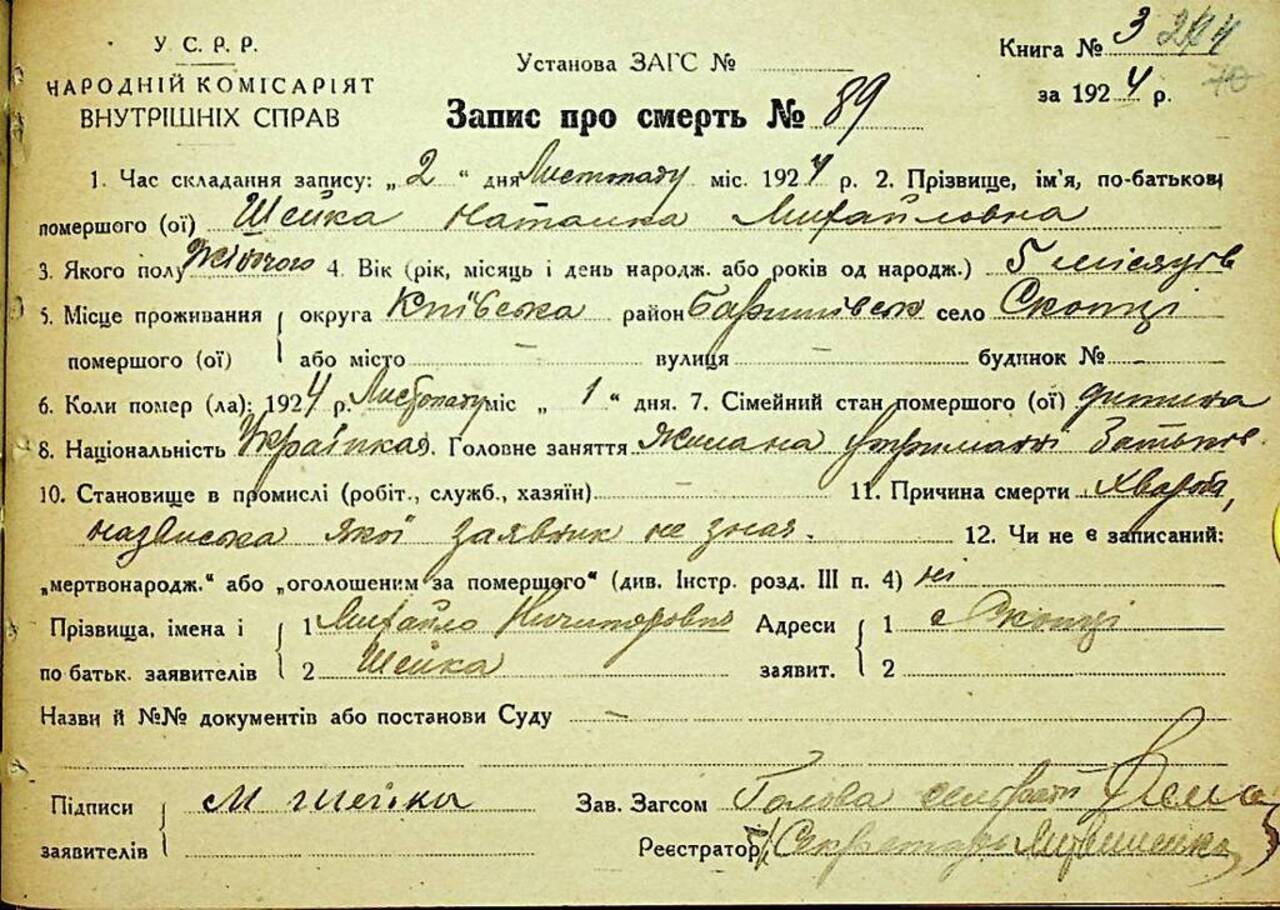 У. С. Р. Р.
НАРОДНІЙ КОМІСАРІЯТ
ВНУТРІШНІХ СПРАВ
Установа ЗАГС №
Запис про смерть № 89
Книга № 3
за 1924 р.
1. Час складання запису: „2“ дня Листопаду міс. 1924 р. 2. Прізвище, ім'я, по-батькові
помершого (ої) Шейка Наталка Михайловна
3. Якого полу жіночого 4. Вік (рік, місяць і день народж. або років од народж.) 5 місяців
5. Місце проживання { округа Київська район Баришівськ село Скопці
помершого (ої) або місто — вулиця — будинок № —
6. Коли помер (ла): 1924 р. Листопаду міс „1“ дня. 7. Сімейний стан помершого (ої) дитина
8. Національність Українка 9. Головне заняття Жила на утриманні батьків
10. Становище в промислі (робіт., служб., хазяїн) — 11. Причина смерти хвароба,
назвиська якої заявник не знає. 12. Чи не є записаний:
„мертвонародж.“ або „оголошеним за померщого“ (див. Інстр. розд. III п. 4) ні
Прізвища, імена і { 1 Михайло Ничипорович Адреси { 1 с Скопці
по батьк. заявителів 2 Шейка заявит. 2
Назви й №№ документів або постанови Суду —
Підписи { М Шейка Зав. Загсом Голова сельради
заявителів Реєстратор Секретарь